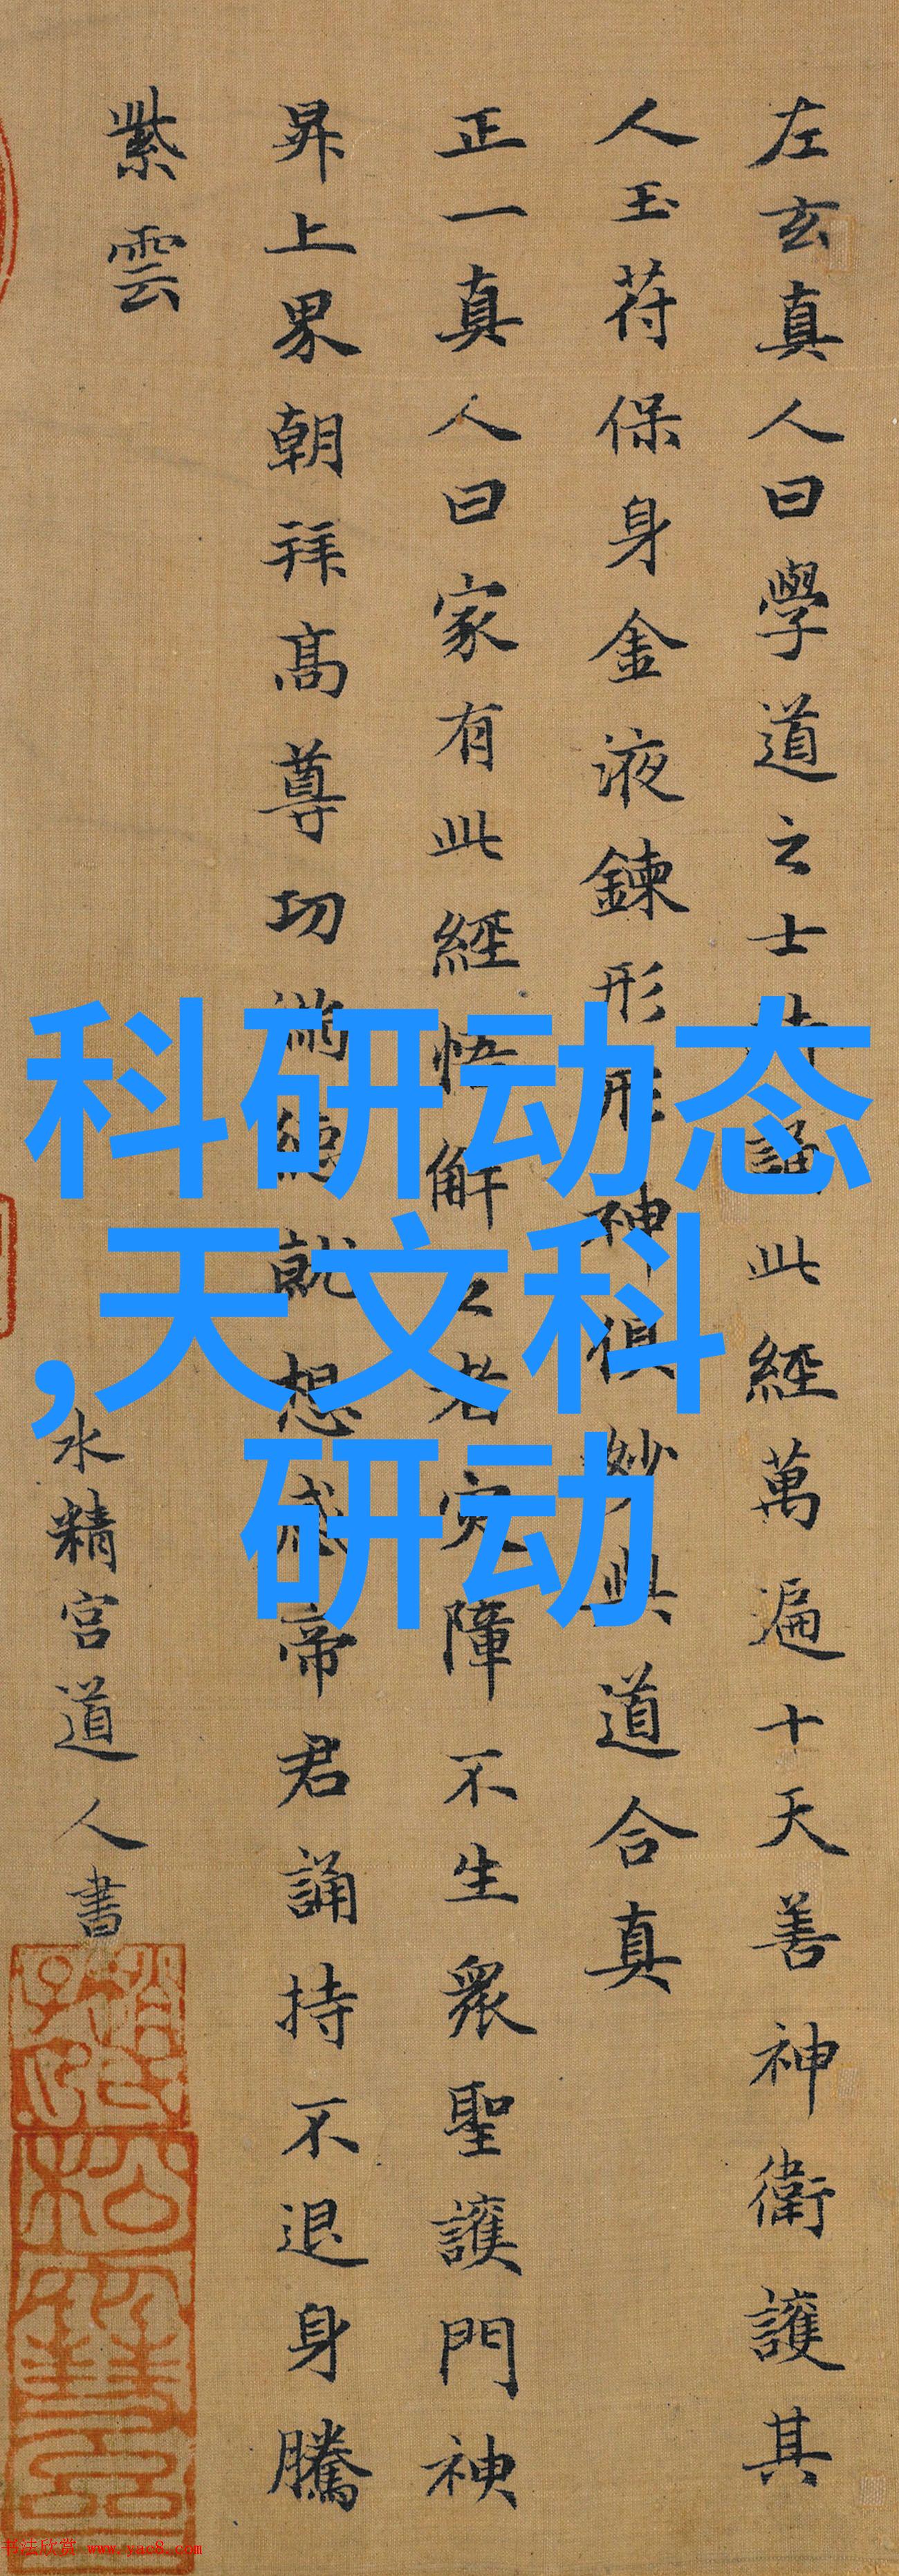 左玄真人曰學道之士持誦此經萬遍十天善神衛護其
人玉苻保身金液鍊形形神俱妙與道合真
正一真人曰家有此經悟解之者灾障不生衆聖護門神
昇上界朝拜高尊功滿德就想感帝君誦持不退身騰
紫雲
水精宮道人書
科研动态
,天文科
研动
书法欣赏 www.yac8.com